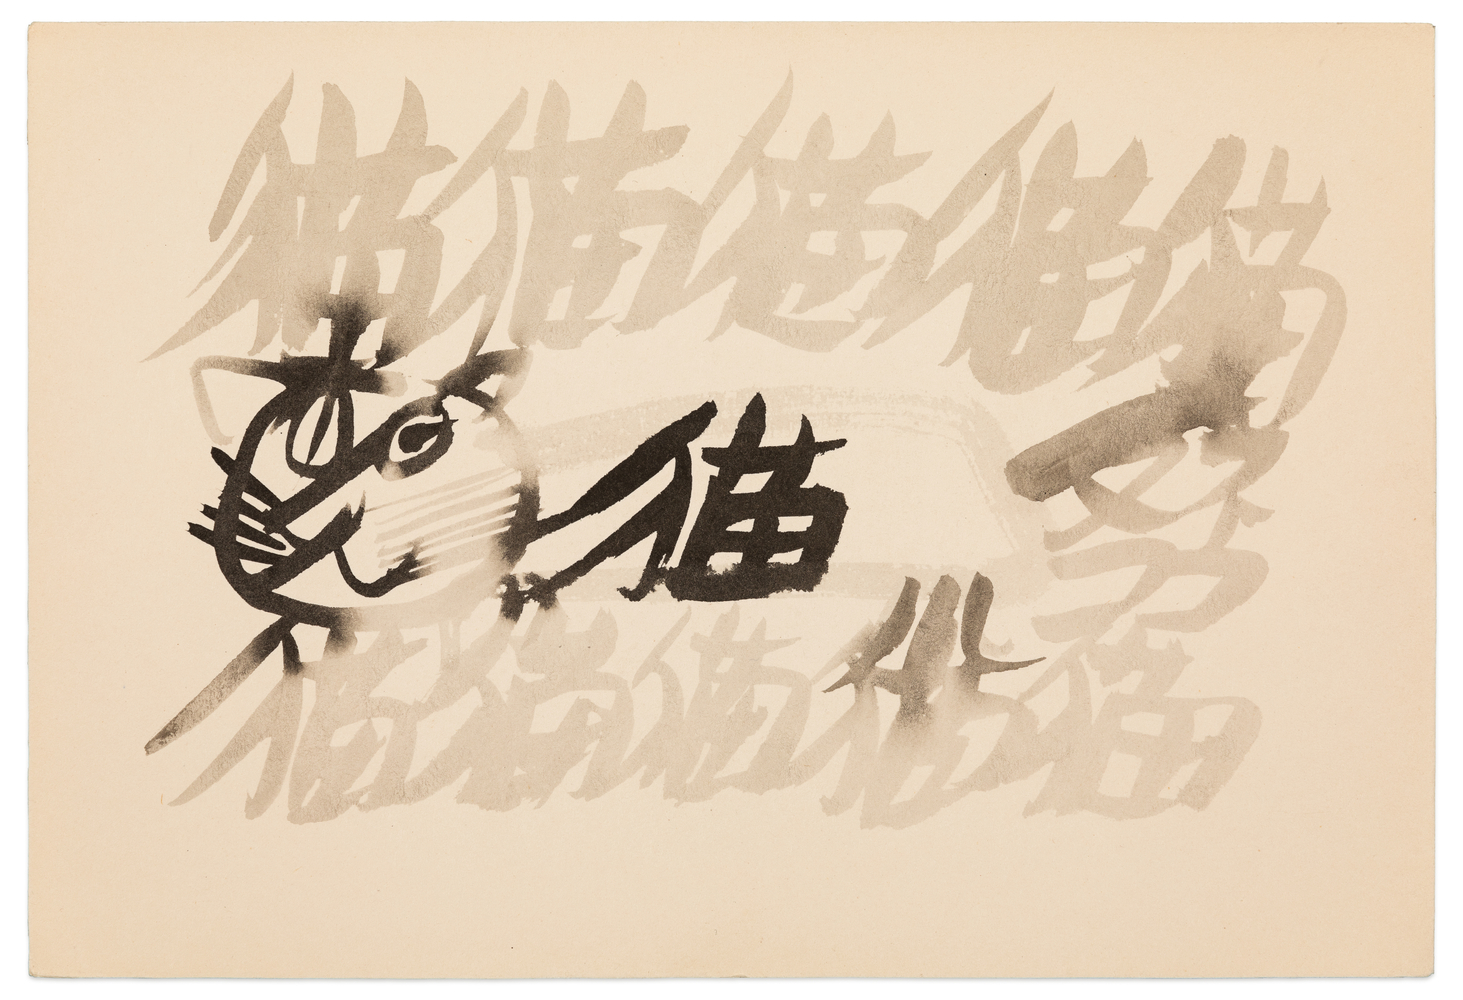 猫猫猫猫猫
猫
猫猫猫猫猫